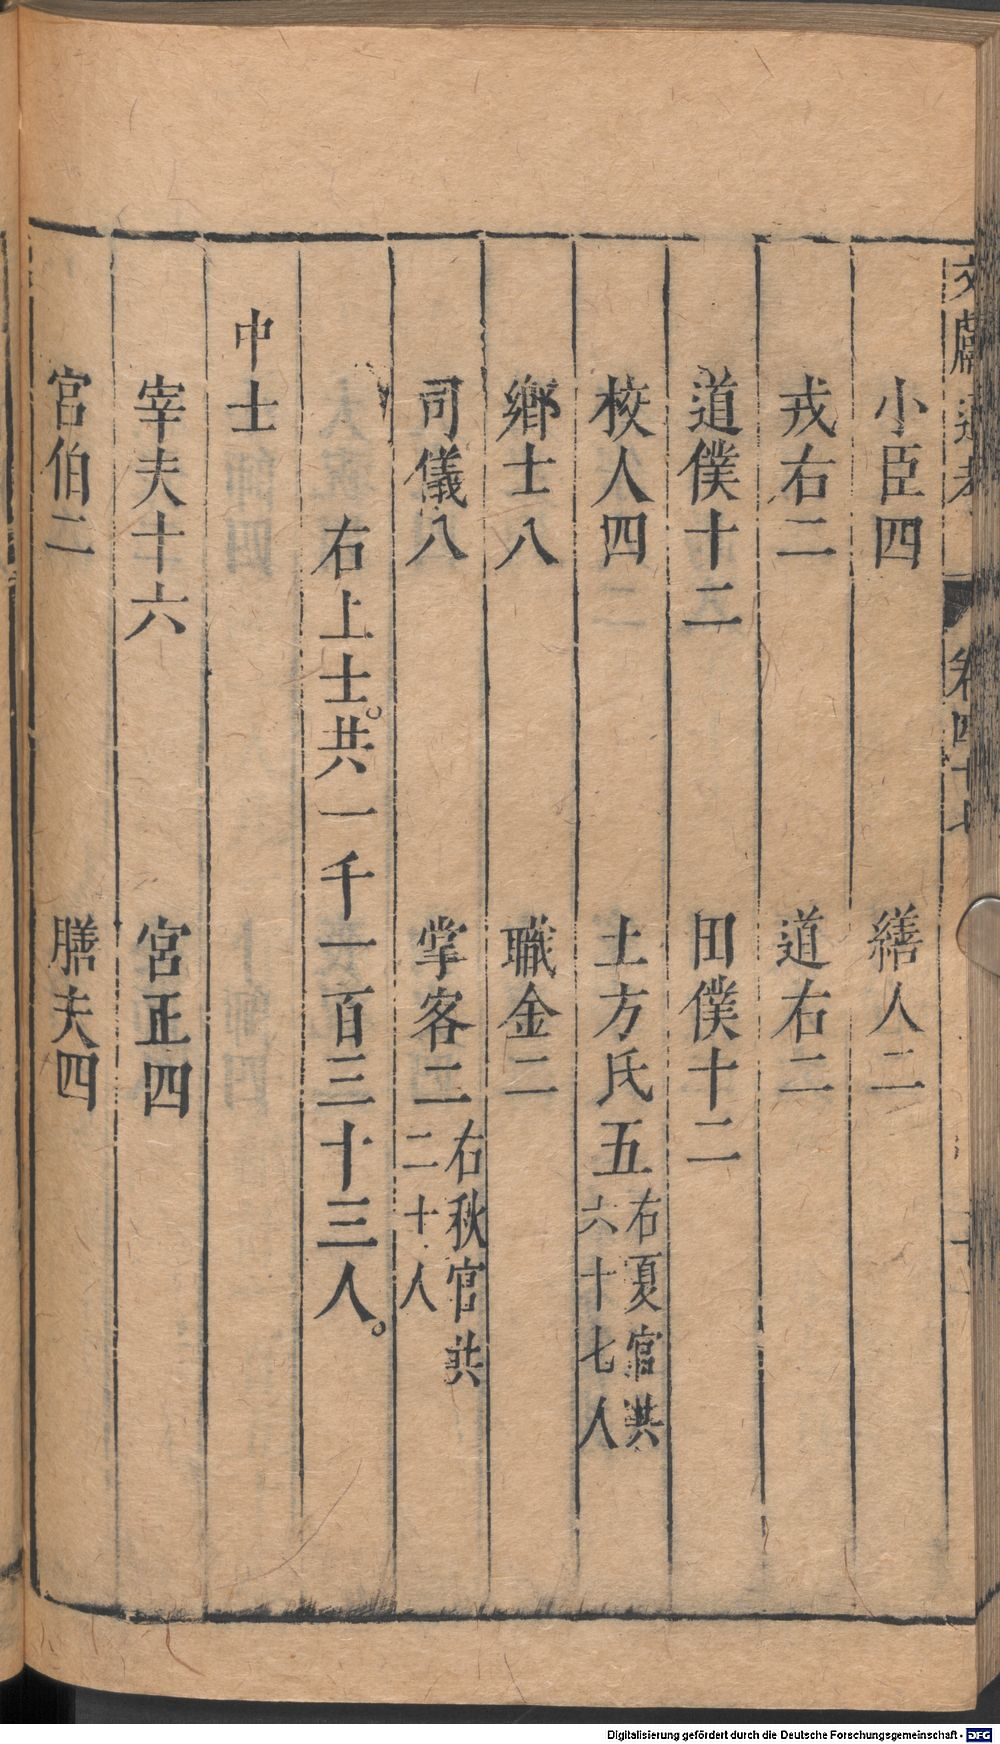 文獻通考 卷四十七
小臣四 繕人二
戎右二 道右二
道僕十二 田僕十二
校人四 土方氏五右夏官共六十七人
鄉士八 職金二
司儀八 掌客二右秋官共二十人
右上士共一千一百三十三人。
中士
宰夫十六 宮正四
宮伯二 膳夫四
Digitalisierung gefördert durch die Deutsche Forschungsgemeinschaft - DFG